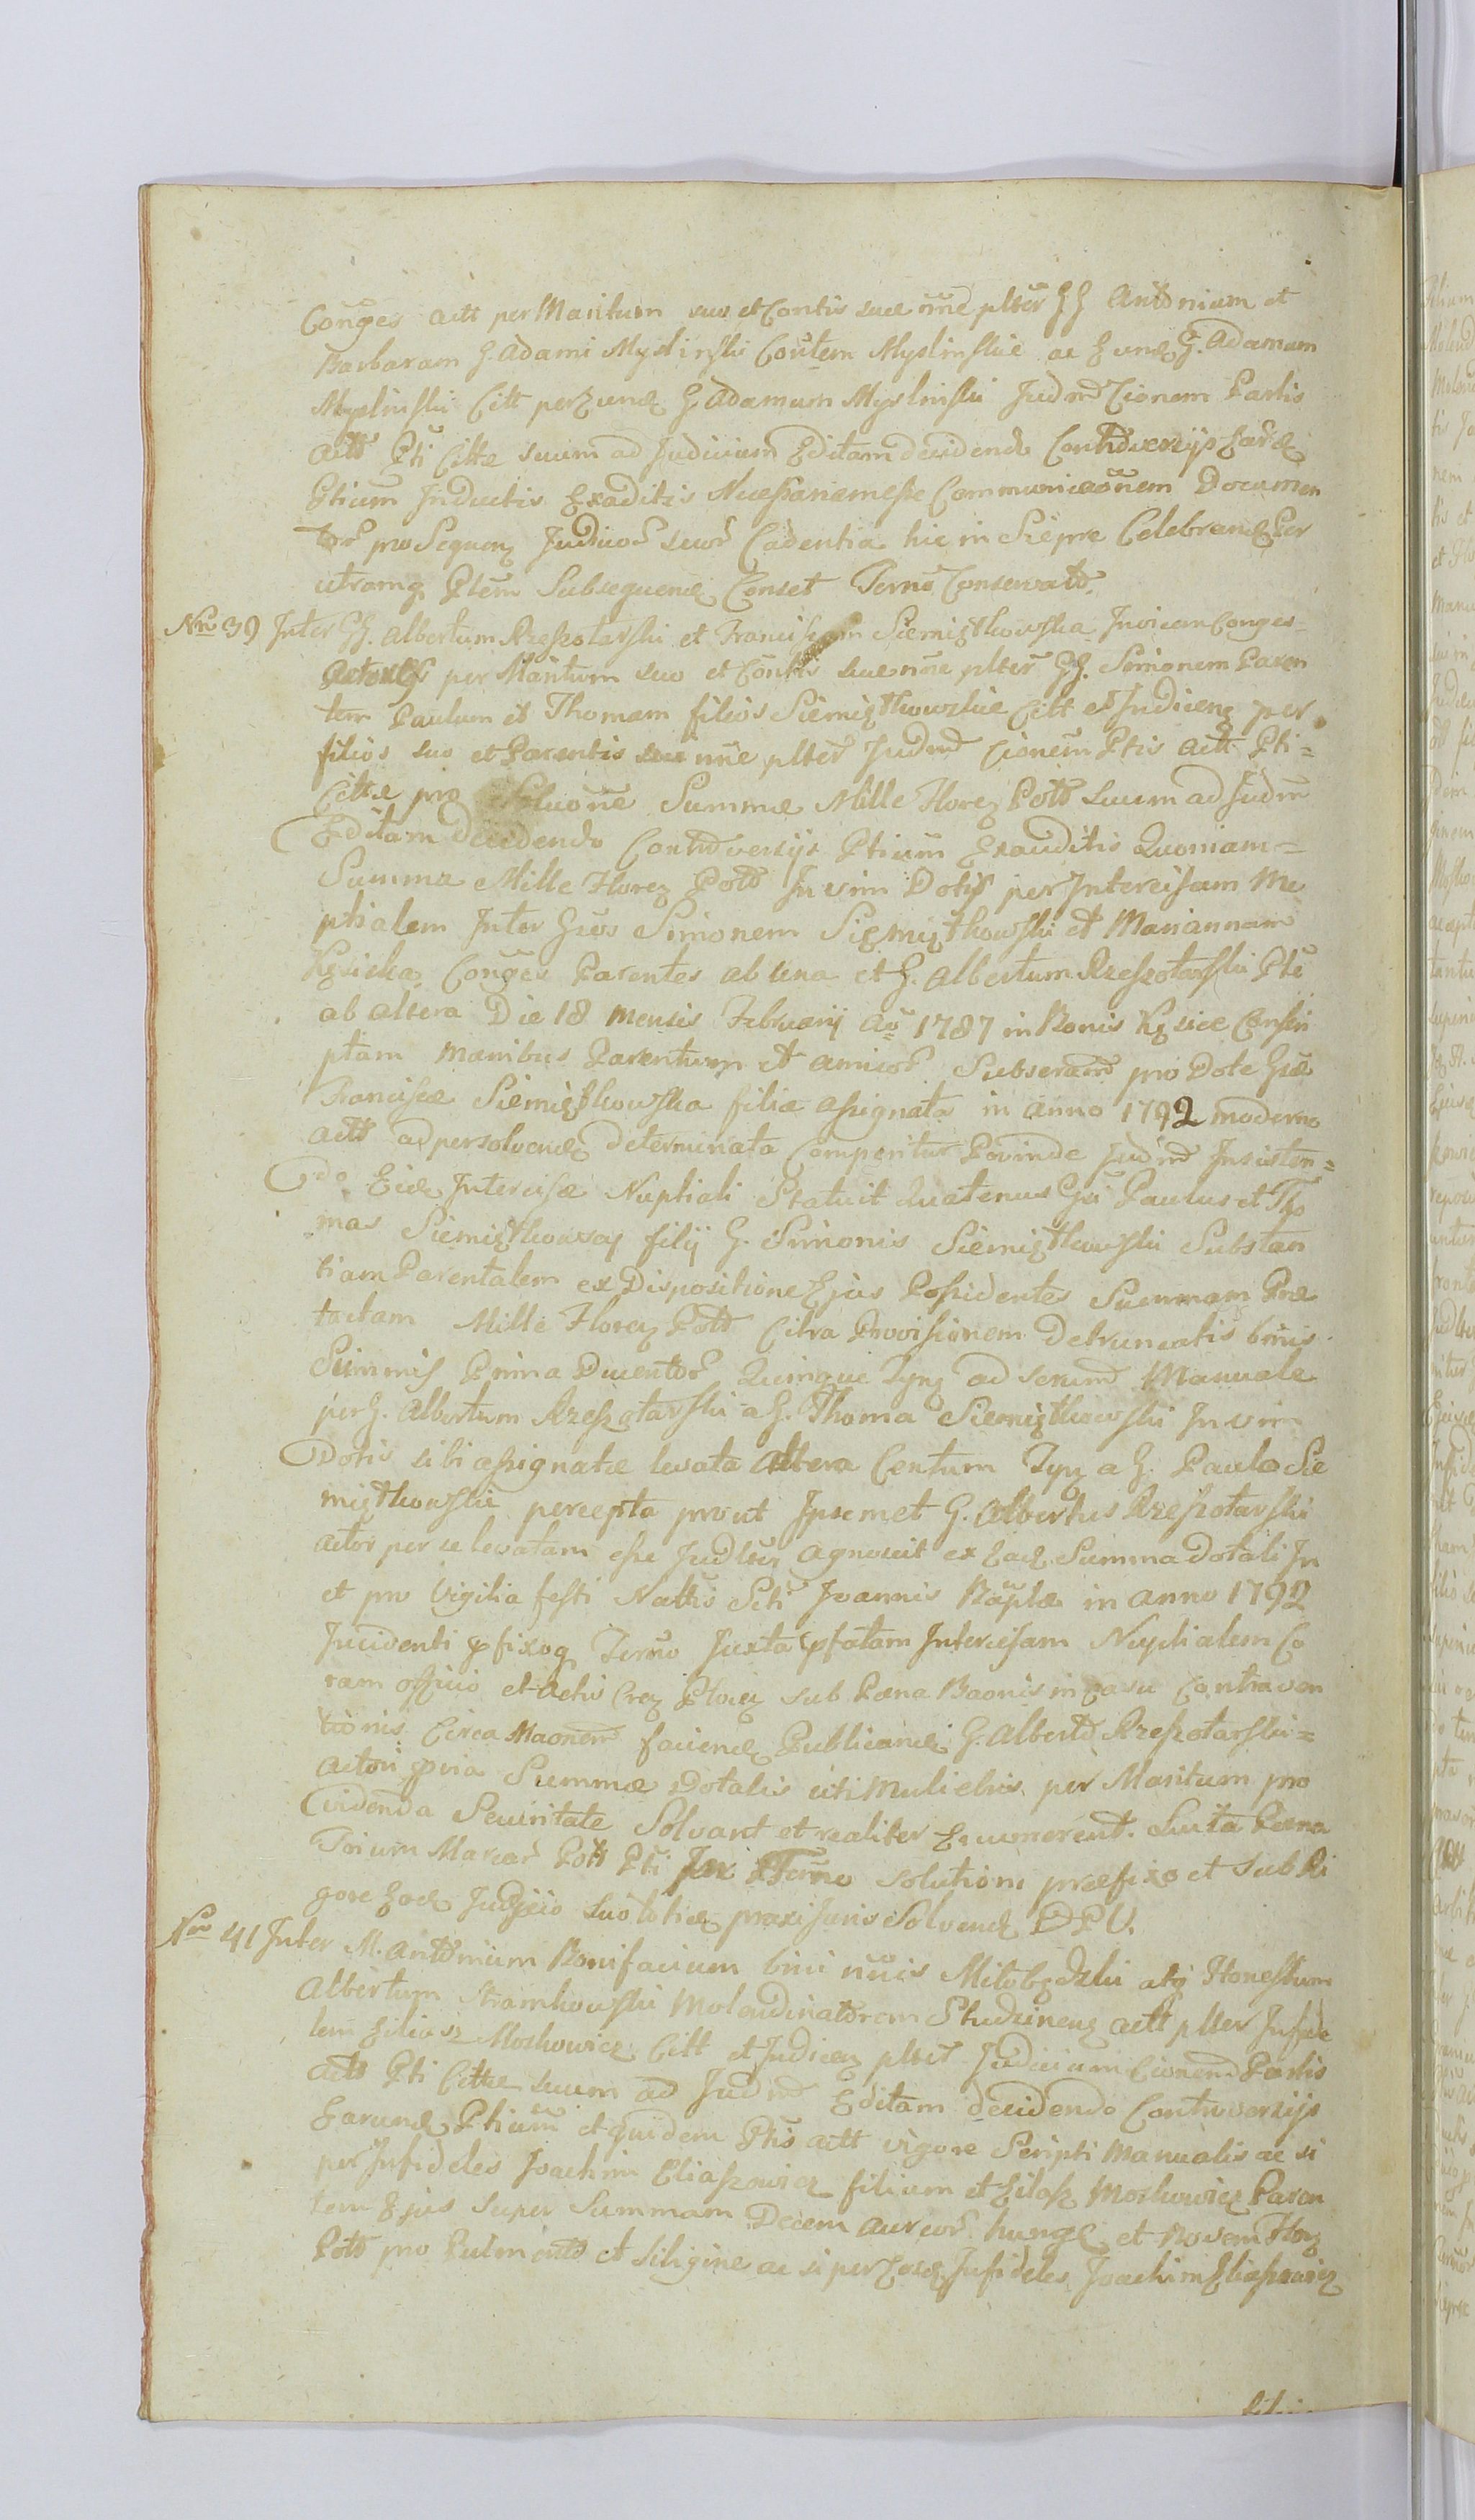 Conges actt per Maritum suo et Contis suae nne plter GG Antonium et
Barbaram G. Adami Myslinski Contem Myslinskie ac Eund G. Adamum
Myslinski Citt per Eund G Adamum Myslinski Judm Cionem Partis
actt Pti Cittae suum ad Judicium Editam decidendo Controversijs Eard
Ptium Inductis Exaditis Necessariamesse Communicaonem Documen
tor pro Sequen Judicior seur Cadentia hic in Sierpre Celebrand Per
utramq Ptem Subsequend Conset Termo Conservatt.
Nro 39 Inter GG. Albertum Rzeszotarski et Franciscam Siemiątkowska Invicem Conges
Actores per Maritum suo et Contis suae nne plter GG. Simonem Paren
tem Paulum et Thomam filios Siemiątkowskie Citt et Judicen per
filios suo et Parentis sui nne plter Judm Cionem Ptis actt Pti =
Cittae pro Soluone Summae Mille Floren Poltt suum ad Judm
Editam Decidendo Controversijs Ptium Exauditis Quoniam =
Summa Mille Floren Poltt In vim Dotis per Intercisam Nu
ptialem Inter Gsos Simonem Siemiątkowski et Mariannam
Kęsicka Conges Parentes ab una et G. Albertum Rzeszotarski Pte
ab altera Die 18 Mensis Februarij Ao 1787 in Bonis Kęsice Conscri
ptam manibus Parentum et amicor Subscram pro Dote Gsae
Franciscae Siemiątkowska filiae assignata in anno 1792 moderno
actt ad persolvend determinata Comperitur Proinde Judm Insisten =
do Eid Intercisae Nuptiali Statuit Quatenus Gsi Paulus et Tho
mas Siemiątkowscy filij G. Simonis Siemiątkowski Substan
tiam Parentalem ex Dispositione Ejus Possidentes Summam Prae
tactam Mille Floren Poltt Citra Provisionem Detruncatis binis
Summis Prima Ducentor Quinque Tyn ad seriem Manuale
per G. Albertum Rzeszotarski a G. Thoma Siemiątkowski In vim
Dotis sibi assignatae levata altera Centum Tyn a G. Paulo Sie
miątkowski percepta prout Ipsemet G. Albertus Rzeszotarski
actor per se levatam esse Judlter agnoscit ex Ead Summa Dotali In
et pro Vigilia festi Nattis Scti Joannis Baptae in anno 1792
Incidenti pfixoq Termo Juxta ptatam Intercisam Nuptialem Co
ram officio et Actis Cren Plocen sub Paena Baonis in Casu Contraven
tionis Circa Maonem faciend Publicand G. Alberto Rzeszotarski =
actori pria Summae Dotalis uti Muliebris per Maritum pro
videnda Securitate Solvant et realiter Enumerent. Lucta Paena
Trium Marcar Poltt Pti Termo solutioni praefixo et sub Ri
gore Ead Judijcio suo toties praxi Juris Solvend DPV.
Nro 41 Inter M. Antonium Bonifacium bini nnis Miłobędzki atq Honestum
Albertum Stramkowski Molendinatorem Studzinens actt plter Infide
lem Eliasz Moskowicz Citt et Judicen plter Judicium Cionem Partis
actt Pti Cittae suum ad Judm Editam decidendo Controversijs
Earund Ptium et quidem Ptis actt vigore Scripti Manualis ac si
per Infideles Joachim Eliaszowicz filium et Eliasz Moskowicz Paren
tem Ejus super Summam Decem aureor hung et Novem Flon
Poltt pro Pulmento et siligine ac si per Eosd Infideles Joachim Eliaszowicz